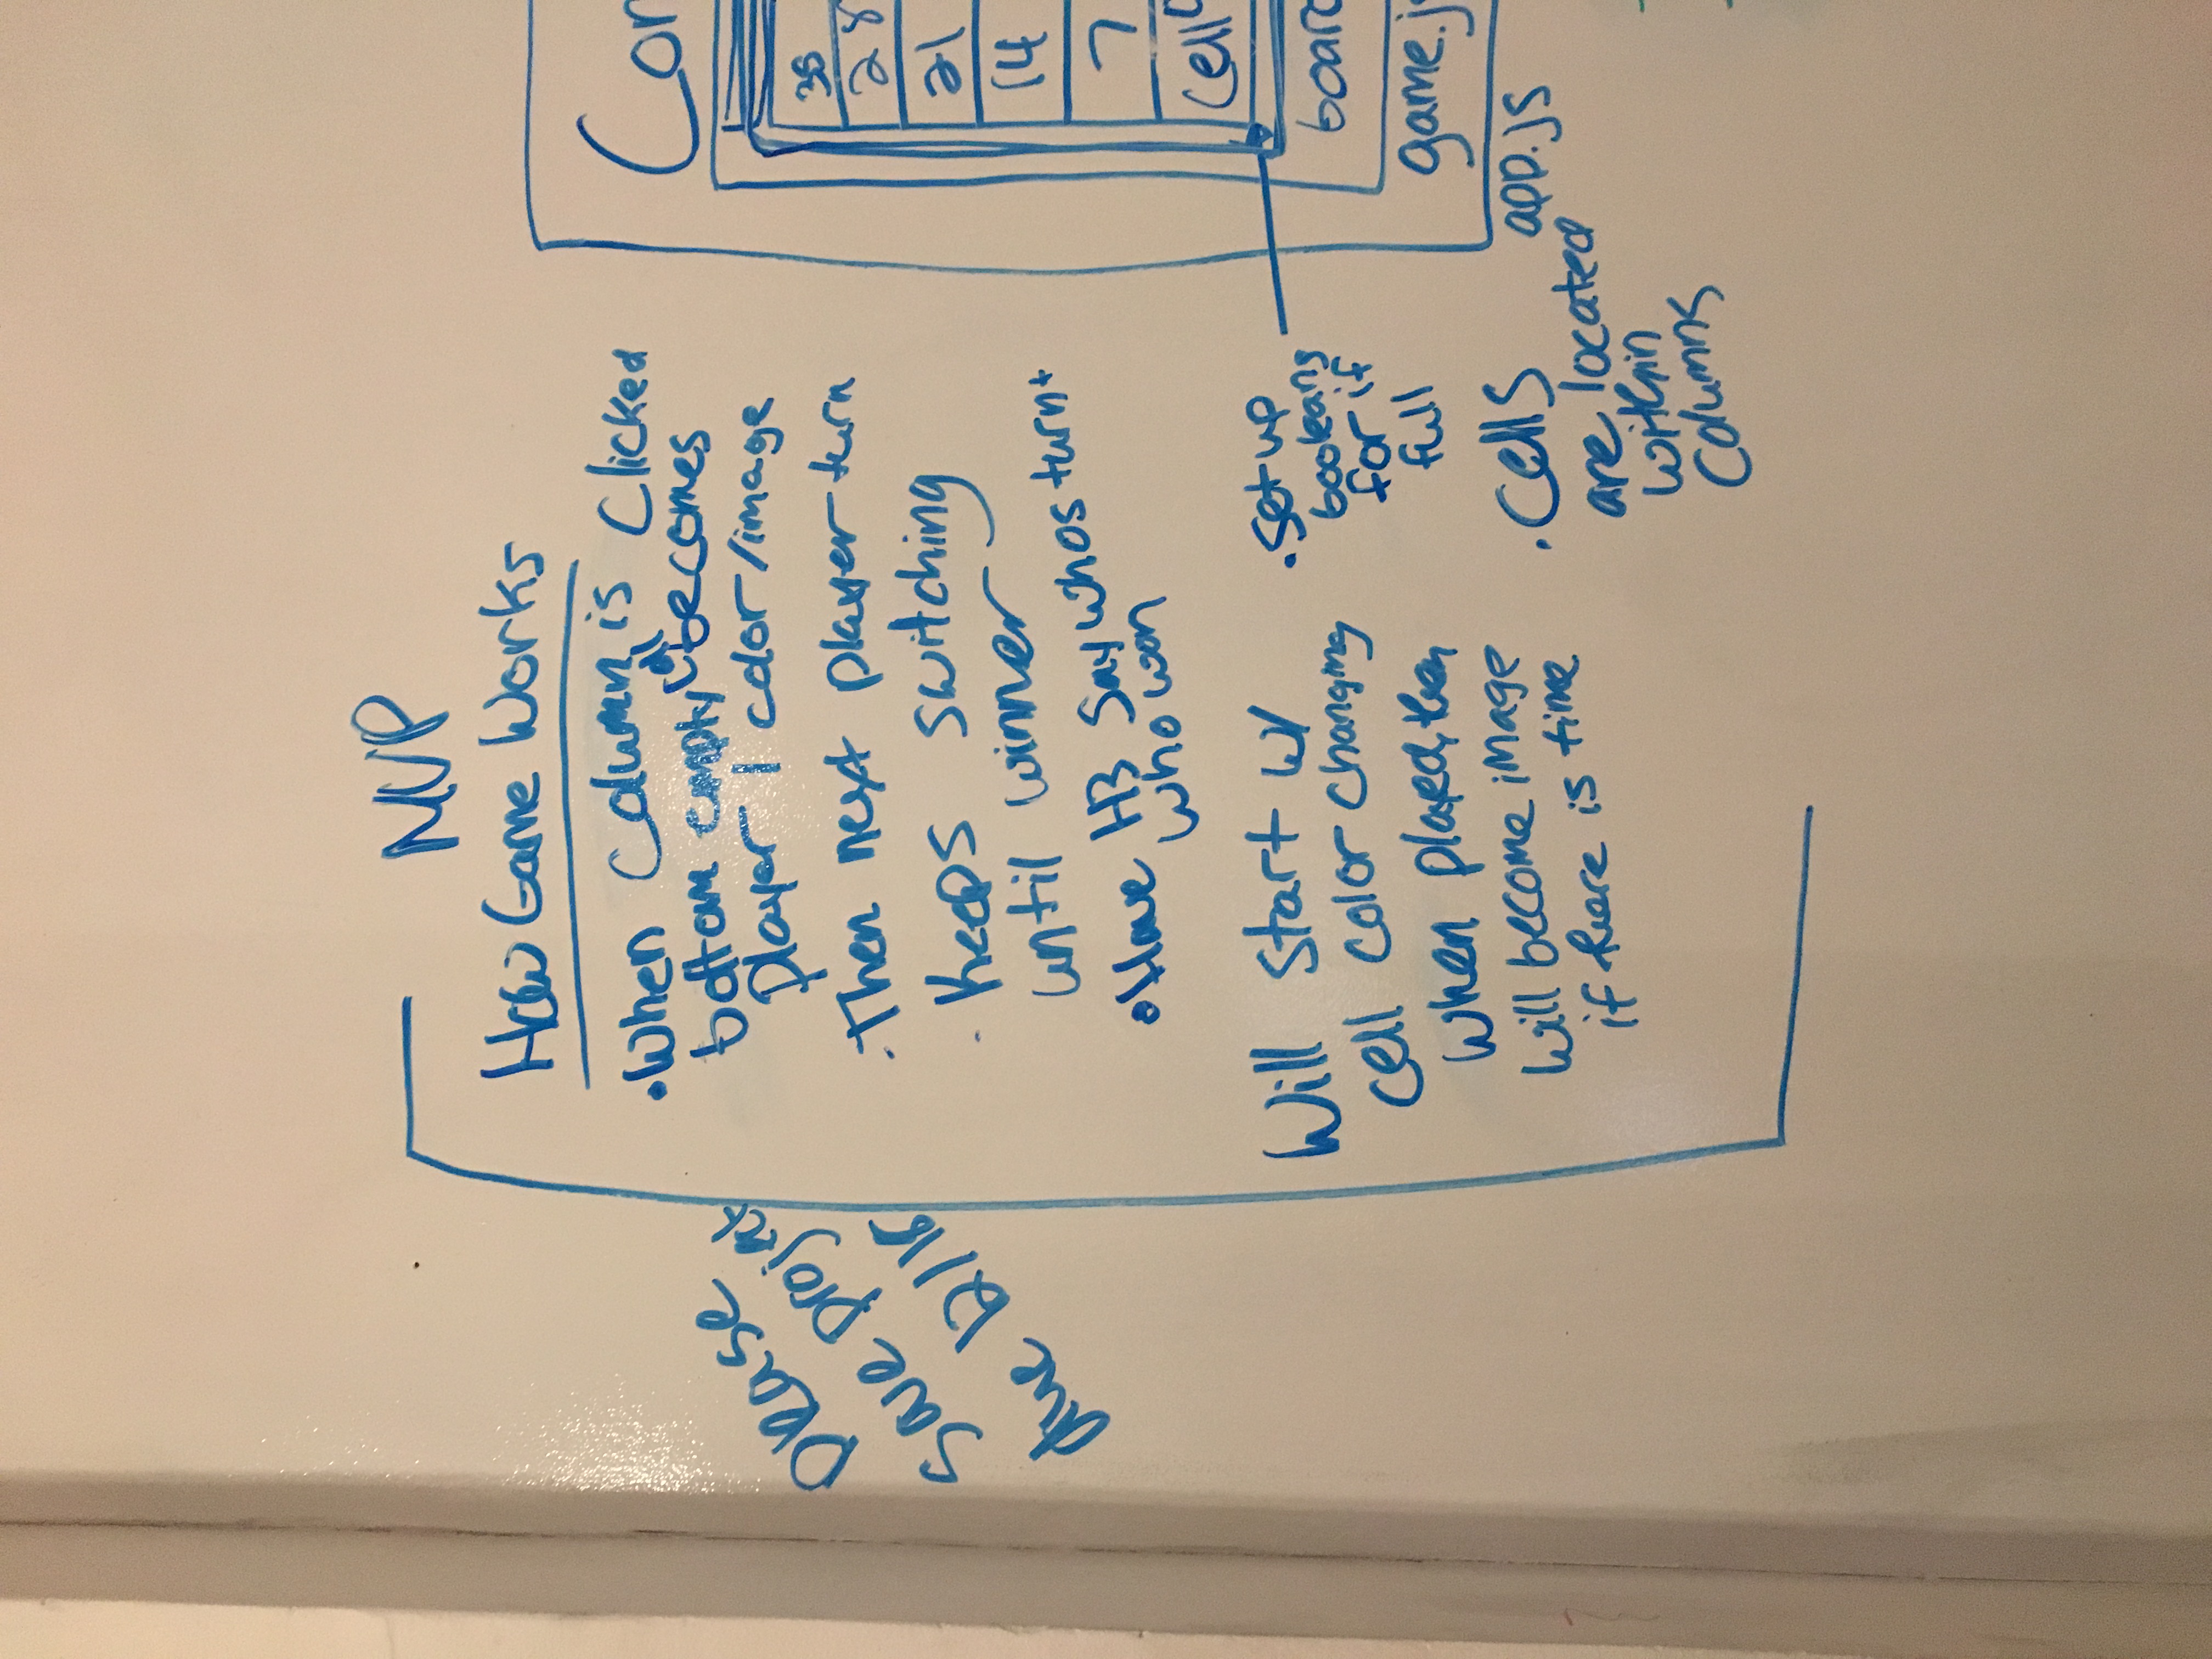 Please
Save project
due 12/18
MVP
How Game Works
• When Column is Clicked
bottom empty cell becomes
player 1 color/image
· Then next player turn
· Keeps switching
until winner
• Have H3 Say whos turn +
who won
Will start w/
cell color changing
when played, then
will become image
if there is time
· set up
booleans
for if
full
· cells
are located
within
columns
Con
35
28
21
14
7
Cell 0
board
game.js
app.js